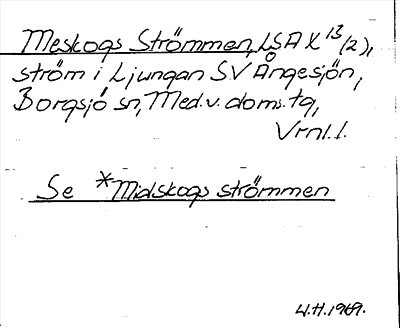 Meskogs Strömmen, LSA X 13/(2),
ström i Ljungan SV Ångesjön,
Borgsjö sn, Med. v. doms. tg,
Vrnl. l.
Se *Midskogs strömmen
U.H. 1969.